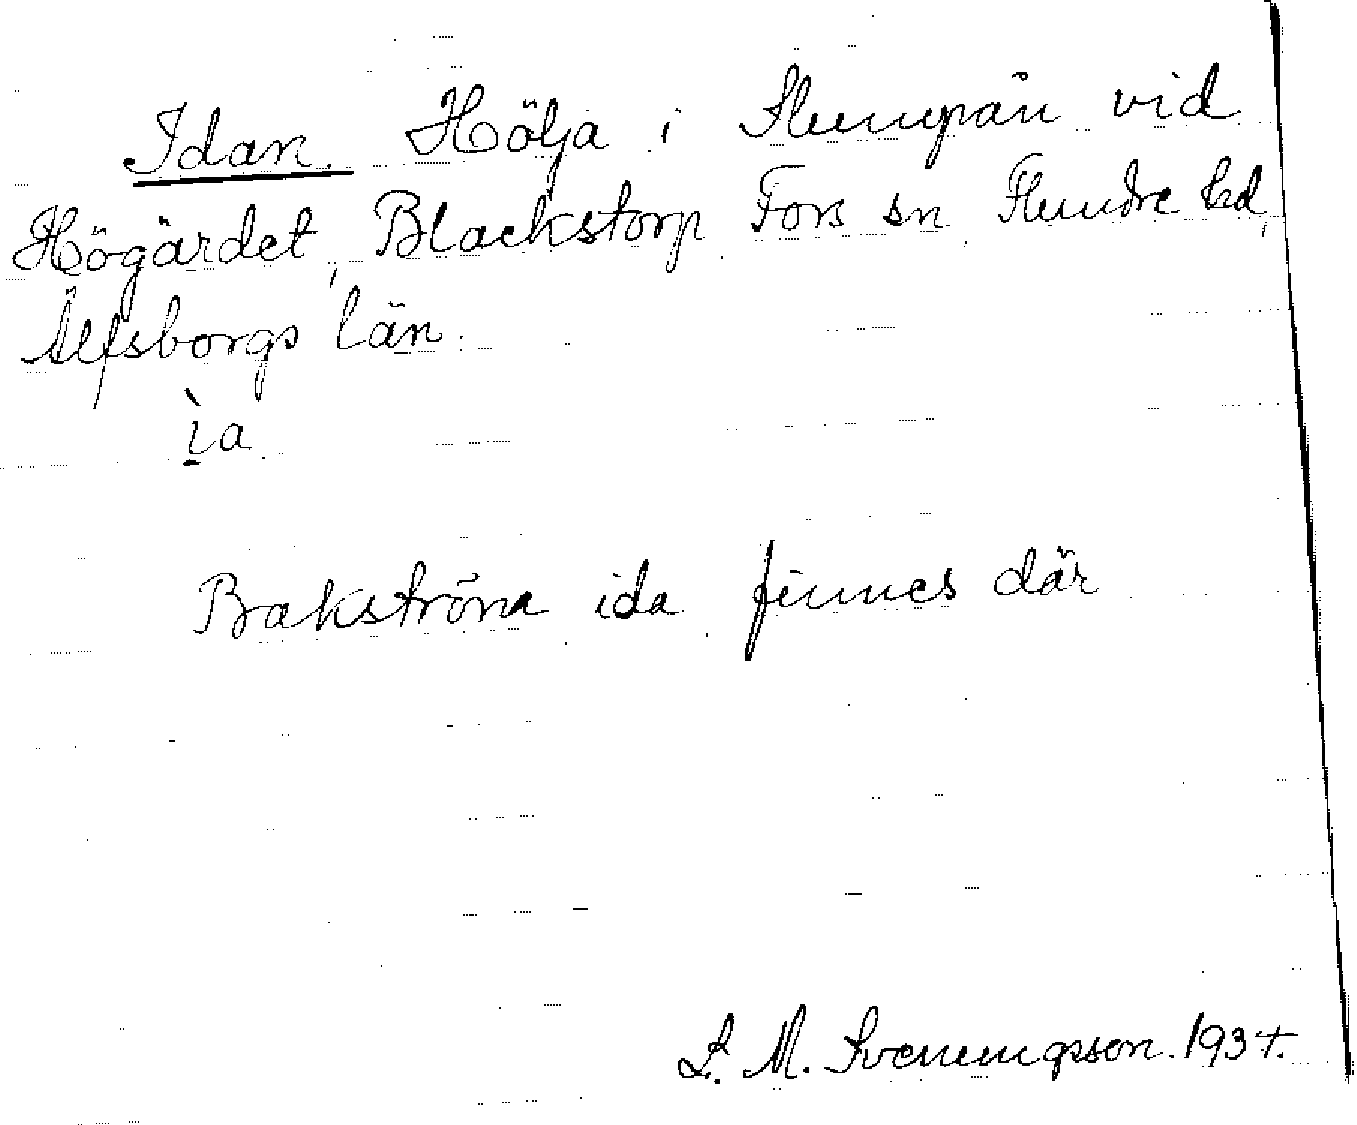 Idan. Hölja i Slumpån vid
Högärdet, Blackstorp Fors sn Flundre hd,
Älfsborgs län.
ìa
Bakströna ida finnes där
S. M. Svenungsson. 1934.